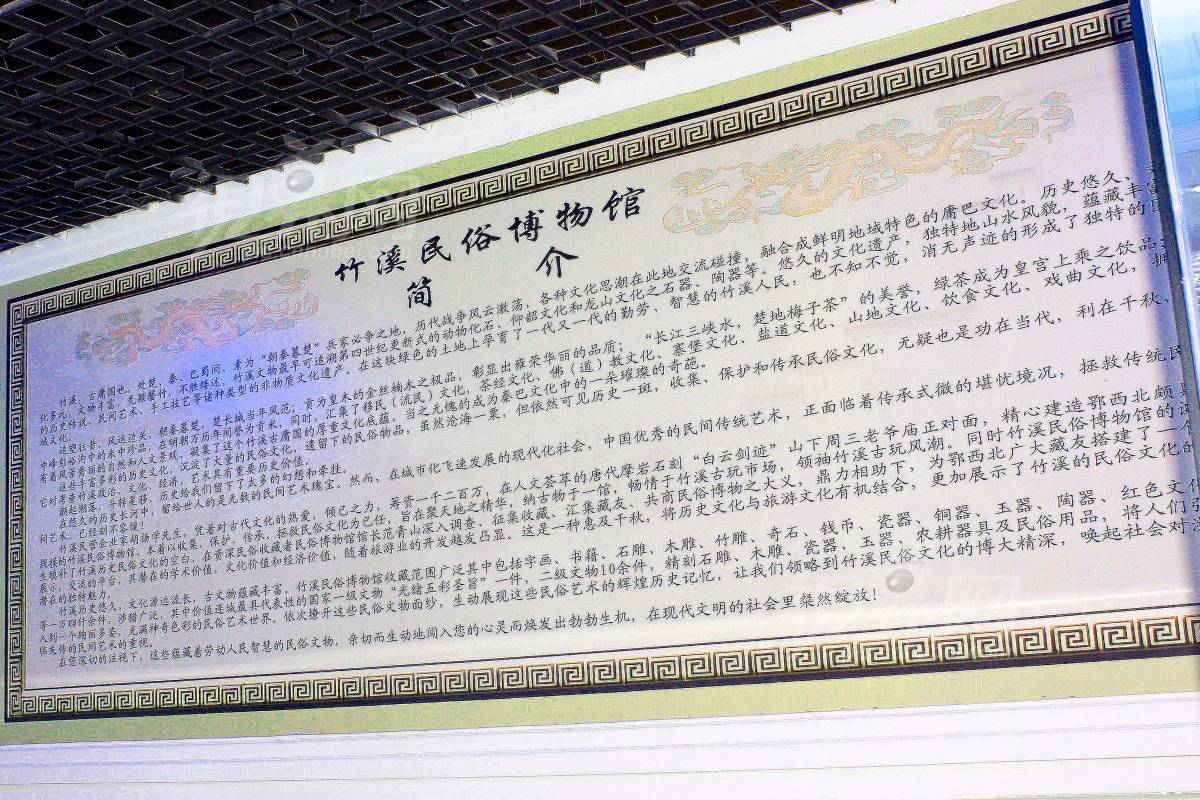 竹溪民俗博物馆
简 介
竹溪，古庸国也。处楚、秦、巴蜀间，素为“朝秦暮楚”兵家必争之地，历代战争风云激荡，各种文化思潮在此地交流碰撞，融合成鲜明地域特色的庸巴文化。历史悠久、
化多元，文物丰富，先颖馨竹，不胜缕述。竹溪文物最早可追溯第四世纪更新式的动物化石、仰韶文化和龙山文化之石器、陶器等。悠久的文化遗产，独特地山水风貌，蕴藏丰富
的历史传说、民间艺术、手工技艺等诸种类型的非物质文化遗产。在这块绿色的土地上孕育了一代又一代的勤劳、智慧的竹溪人民，也不知不觉，消无声迹的形成了独特的
域文化。
边塑壮昔，风运边关，朝秦暮楚，楚长城当年风范；育为皇木的金丝楠木之极品，彰显出雍荣华丽的品质；“长江三峡水，楚地梅子茶”的美誉，绿茶成为皇宫上乘之饮品
中峰彭峪沟中的米中珍品，在明朝万历年间誉为贡米，同时，汇集了移民（流民）文化，茶经文化、佛（道）教文化、寨堡文化、盐道文化、山地文化、饮食文化、戏曲文化，拥
有着风景秀丽的自然和人文景观，凝集了这个竹溪古庸国的厚重文化底蕴。当之无愧的成为秦巴文化中的一朵璀璨的奇葩。
这些丰富多彩的历史文化，沉淀了大量的民俗文化，遗留下的民俗物品，虽然沧海一粟，但依然可见历史一斑，收集、保护和传承民俗文化，无疑也是功在当代，利在千秋，
它对考查竹溪政治、文化、经济、艺术具有重要历史价值。
潮起潮落，斗转星移，历史给我们留下了太多的幻想和牵挂。
在悠久的历史长河中，留给世人的是无数的民间艺术瑰宝。然而，在城市化飞速发展的现代化社会，中国优秀的民间传统艺术，正面临着传承式微的堪忧境况，拯救传统民
间艺术，已经刻不容缓！
竹溪民营企业家胡扬学先生，凭着对古代文化的热爱，倾已之力，筹资一千二百万，在人文荟萃的唐代摩岩石刻“白云剑迹”山下周三老爷庙正对面，精心建造鄂西北颇具
现模的竹溪民俗博物馆，本着以收集、保护、传承、拯救民俗文化为已任，旨在聚天地之精华，纳古物于一馆，畅情于竹溪古玩市场，领袖竹溪古玩风潮。同时竹溪民俗博物馆的
生填补了竹溪历史民俗文化的空白。在资深民俗收藏者民俗博物馆馆长范青山深入调查、征集收藏、汇集藏友、共商民俗博物之大义，鼎力相助下，为鄂西北广大藏友搭建了一个
展示、交流的平台，共潜在的学术价值，文化价值和经济价值，随着旅游业的开发越发凸显。这是一种惠及千秋，将历史文化与旅游文化有机结合，更加展示了竹溪的民俗文化的
潜在的独特魅力。
竹溪历史悠久，文化源远流长，古文物蕴藏丰富，竹溪民俗博物馆收藏范围广泛其中包括字画、书籍、石雕、木雕、竹雕、奇石、钱币、瓷器、铜器、玉器、陶器、红色文化
等一万四仟余件，涉猎广泛，其中价值连城最具代表性的国家一级文物“光绪五彩圣旨”一件，二级文物10余件，精刻石雕、木雕、瓷器、玉器、农耕器具及民俗用品，将人们引
入到一个绚丽多姿，充满神奇色彩的民俗艺术世界。依次撩开这些民俗文物面纱，生动展现这些民俗艺术的辉煌历史记忆，让我们领略到竹溪民俗文化的博大精深，唤起社会对
临失传的民间艺术的重视。
在您深切的注视下，这些蕴藏着劳动人民智慧的民俗文物，亲切而生动地闯入您的心灵而焕发出勃勃生机，在现代文明的社会里粲然绽放!